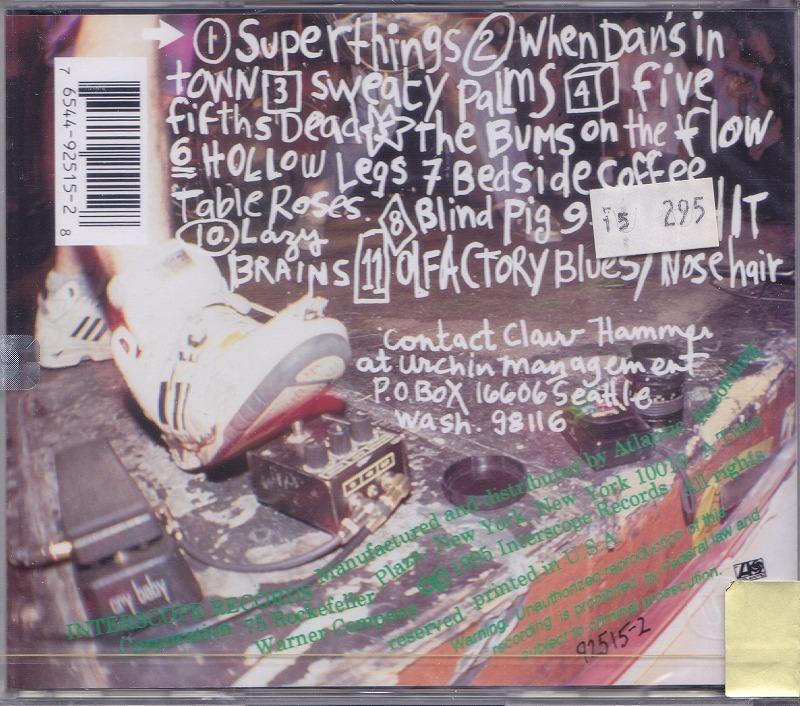 1 Superthings 2 When Dan's in
town 3 sweaty palms 4 five
fifths Dead 5 The Bums on the flow
6 Hollow Legs 7 Bedside coffee
Table Roses. 8 Blind Pig 9. IT
10. Lazy
BRAINS 11 OLFACTORY Blues/Nosehair
15 295
7 6544-92515-2 8
contact Claw Hammer
at urchin management
P.O. BOX 16606 Seattle
Wash. 98116
cry baby
INTERSCOPE RECORDS Manufactured and distributed by Atlantic Recording
Corporation 75 Rockefeller Plaza New York, New York 10019 A Time
Warner Company ℗© 1995 Interscope Records All rights
reserved printed in U.S.A
Warning: Unauthorized reproduction of this
recording is prohibited by Federal law and
subject to criminal prosecution.
92515-2